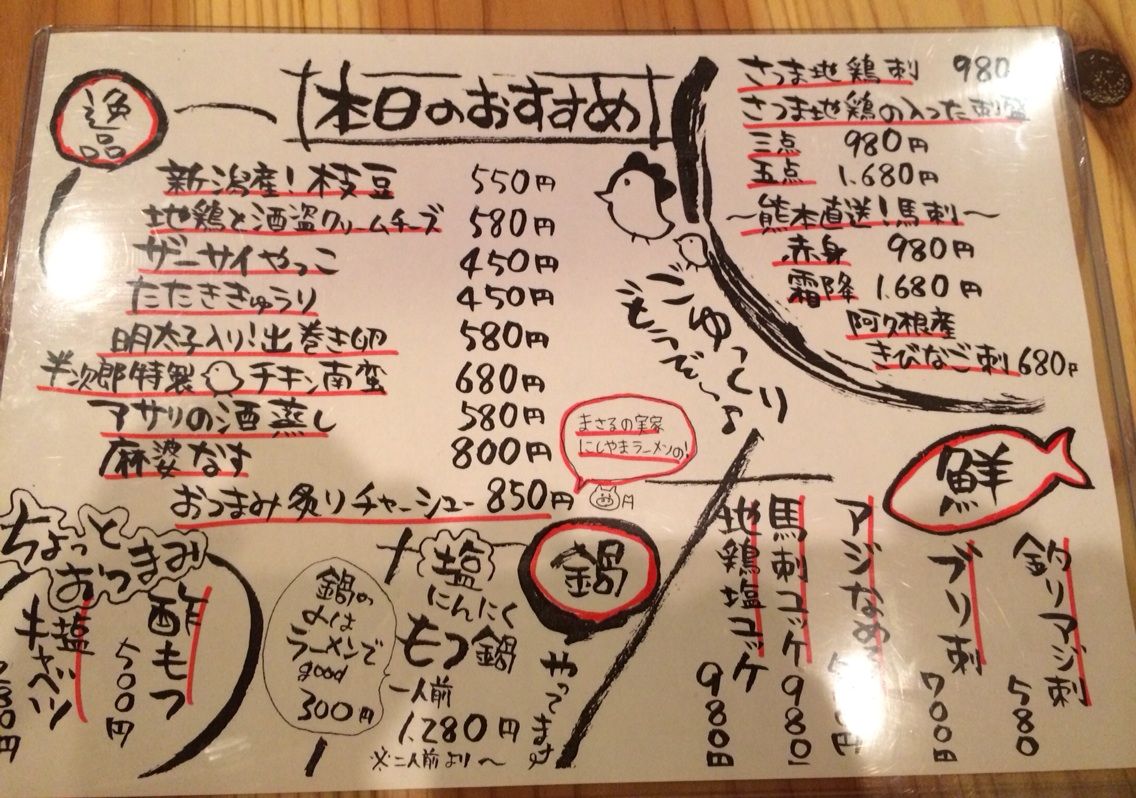 逸品
本日のおすすめ
新潟産!枝豆 550円
地鶏と酒盗クリームチーズ 580円
ザーサイやっこ 450円
たたききゅうり 450円
明太子入り!出巻き卵 580円
半次郎特製チキン南蛮 680円
アサリの酒蒸し 580円
麻婆なす 800円
おつまみ炙りチャーシュー 850円
まさるの実家
にしやまラーメンの!
ごゆっくり
さつま地鶏刺 980
さつま地鶏の入った刺盛
三点 980円
五点 1.680円
〜熊本直送!馬刺〜
赤身 980円
霜降 1.680円
阿久根産
きびなご刺 680
鮮
釣りアジ刺 580
ブリ刺 700円
アジなめ
馬刺ユッケ 980
地鶏塩ユッケ 980円
鍋
やってます
塩
にんにく
もつ鍋
一人前
1.280円
※二人前より〜
鍋の
〆は
ラーメンで
good
300円
ちょっと
おつまみ
酢もつ 500円
塩